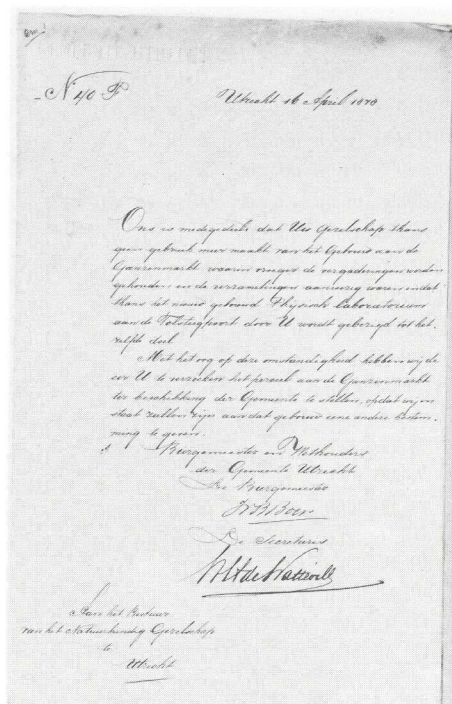 N 40 F
Utrecht 16 April 1878
Ons is medegedeeld dat Uw Gezelschap thans
geen gebruik meer maakt van het Gebouw aan de
Ganzenmarkt waarin vroeger de vergaderingen werden
gehouden en de verzamelingen aanwezig waren omdat
thans het nieuw gebouwd Physisch laboratorium
aan de Tolsteegpoort door U wordt gebezigd tot het-
zelfde doel
Met het oog op deze omstandigheid hebben wij de
eer U te verzoeken het perceel aan de Ganzenmarkt
ter beschikking der Gemeente te stellen, opdat wij in
staat zullen zijn aan dat gebouw eene andere bestem-
ming te geven.
Burgemeester en Wethouders
der Gemeente Utrecht
De Burgemeester
Boer
De Secretaris
de Watteville
Aan het Bestuur
van het Natuurkundig Gezelschap
te
Utrecht